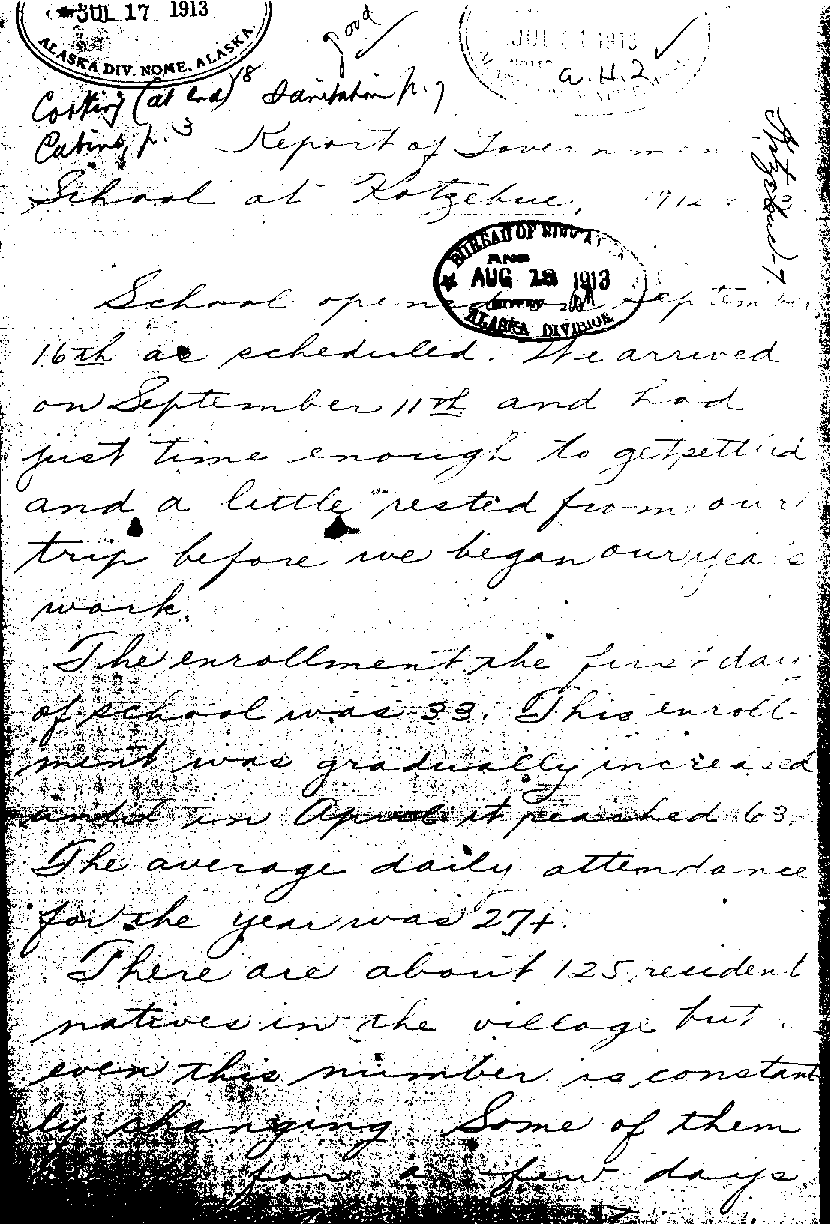 JUL 17 1913
ALASKA DIV. NOME, ALASKA.
good
JUL 1913
a.H.Z.
Cooking (at end) 18 Sanitation p. 7
Cabins, p. 3
Kotzebue-1
Report of Governmen
School at Kotzebue, 191
BUREAU OF
AUG 18 1913
ALASKA DIVISION
School opened on September
16th as scheduled. We arrived
on September 11th and had
just time enough to get settled
and a little rested from our
trip before we began our year's
work.
The enrollment the first day
of school was 33. This enroll-
ment was gradually increased
until in April it reached 63.
The average daily attendance
for the year was 27+.
There are about 125 resident
natives in the village but
even this number is constant
ly changing Some of them
for a few days